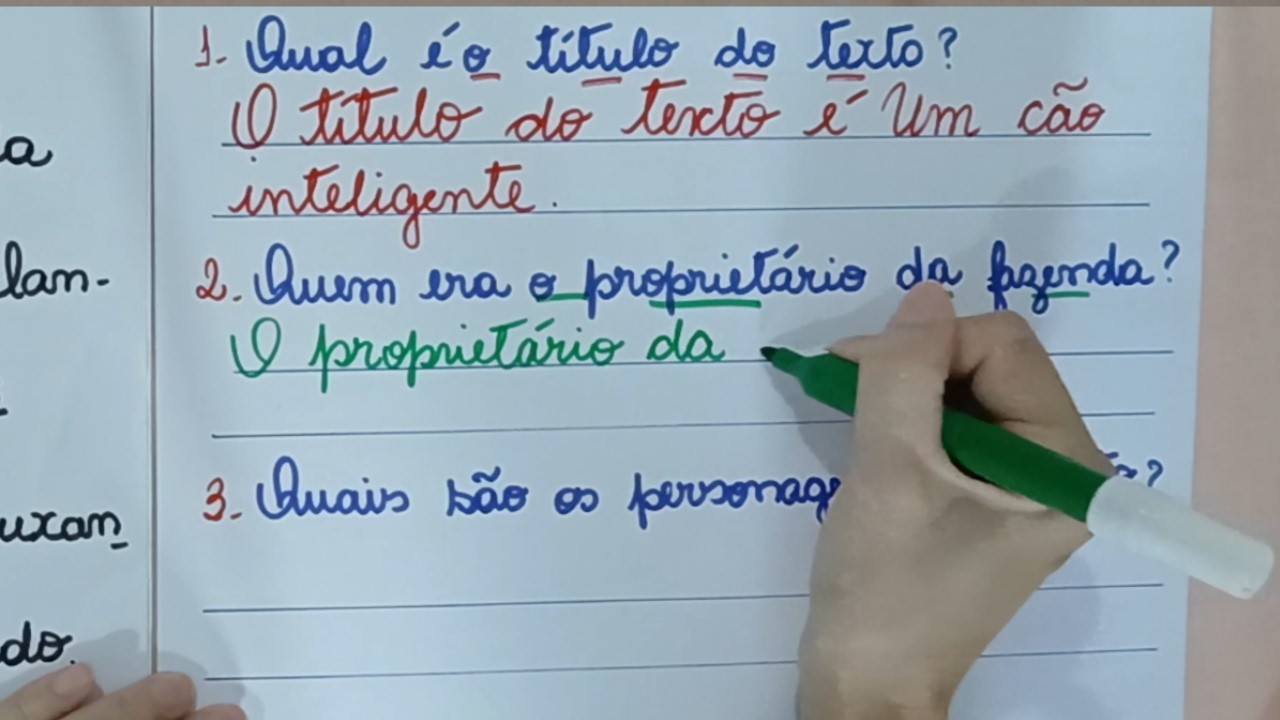 a
lan-
uxan
do.
1. Qual é o título do texto?
O título do texto é Um cão
inteligente.
2. Quem era o proprietário da fazenda?
O proprietário da
3. Quais são os